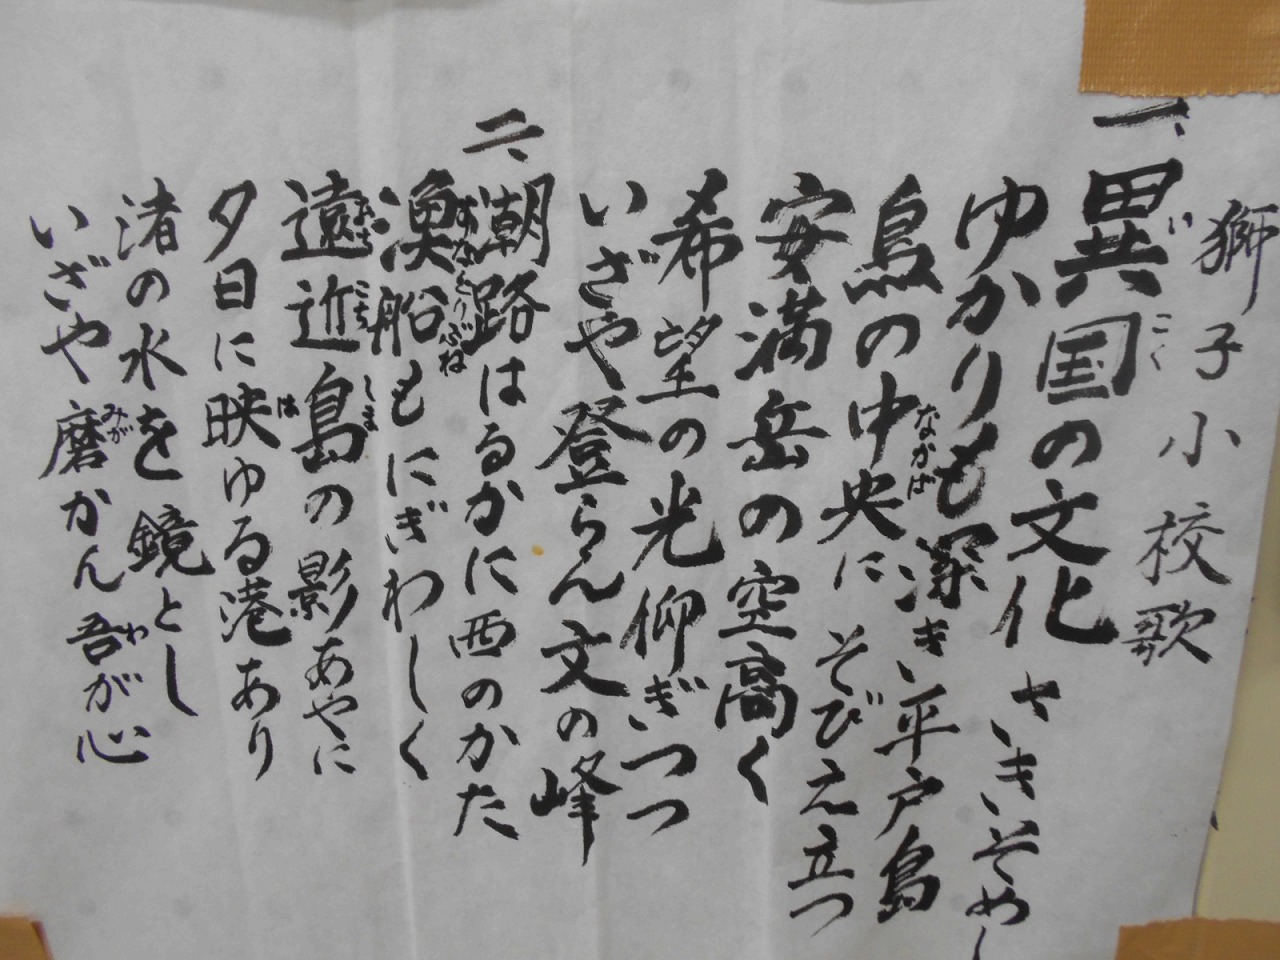 獅子小校歌
一、異国の文化さきそめし
ゆかりも深き平戸島
島の中央にそびえ立つ
安満岳の空高く
希望の光仰ぎつつ
いざや登らん文の峰
二、潮路はるかに西のかた
漁船もにぎわしく
遠近島の影あやに
夕日に映ゆる港あり
渚の水を鏡とし
いざや磨かん吾が心
いこく
なかば
すなどりぶね
おちこちしま
は
みが
わ